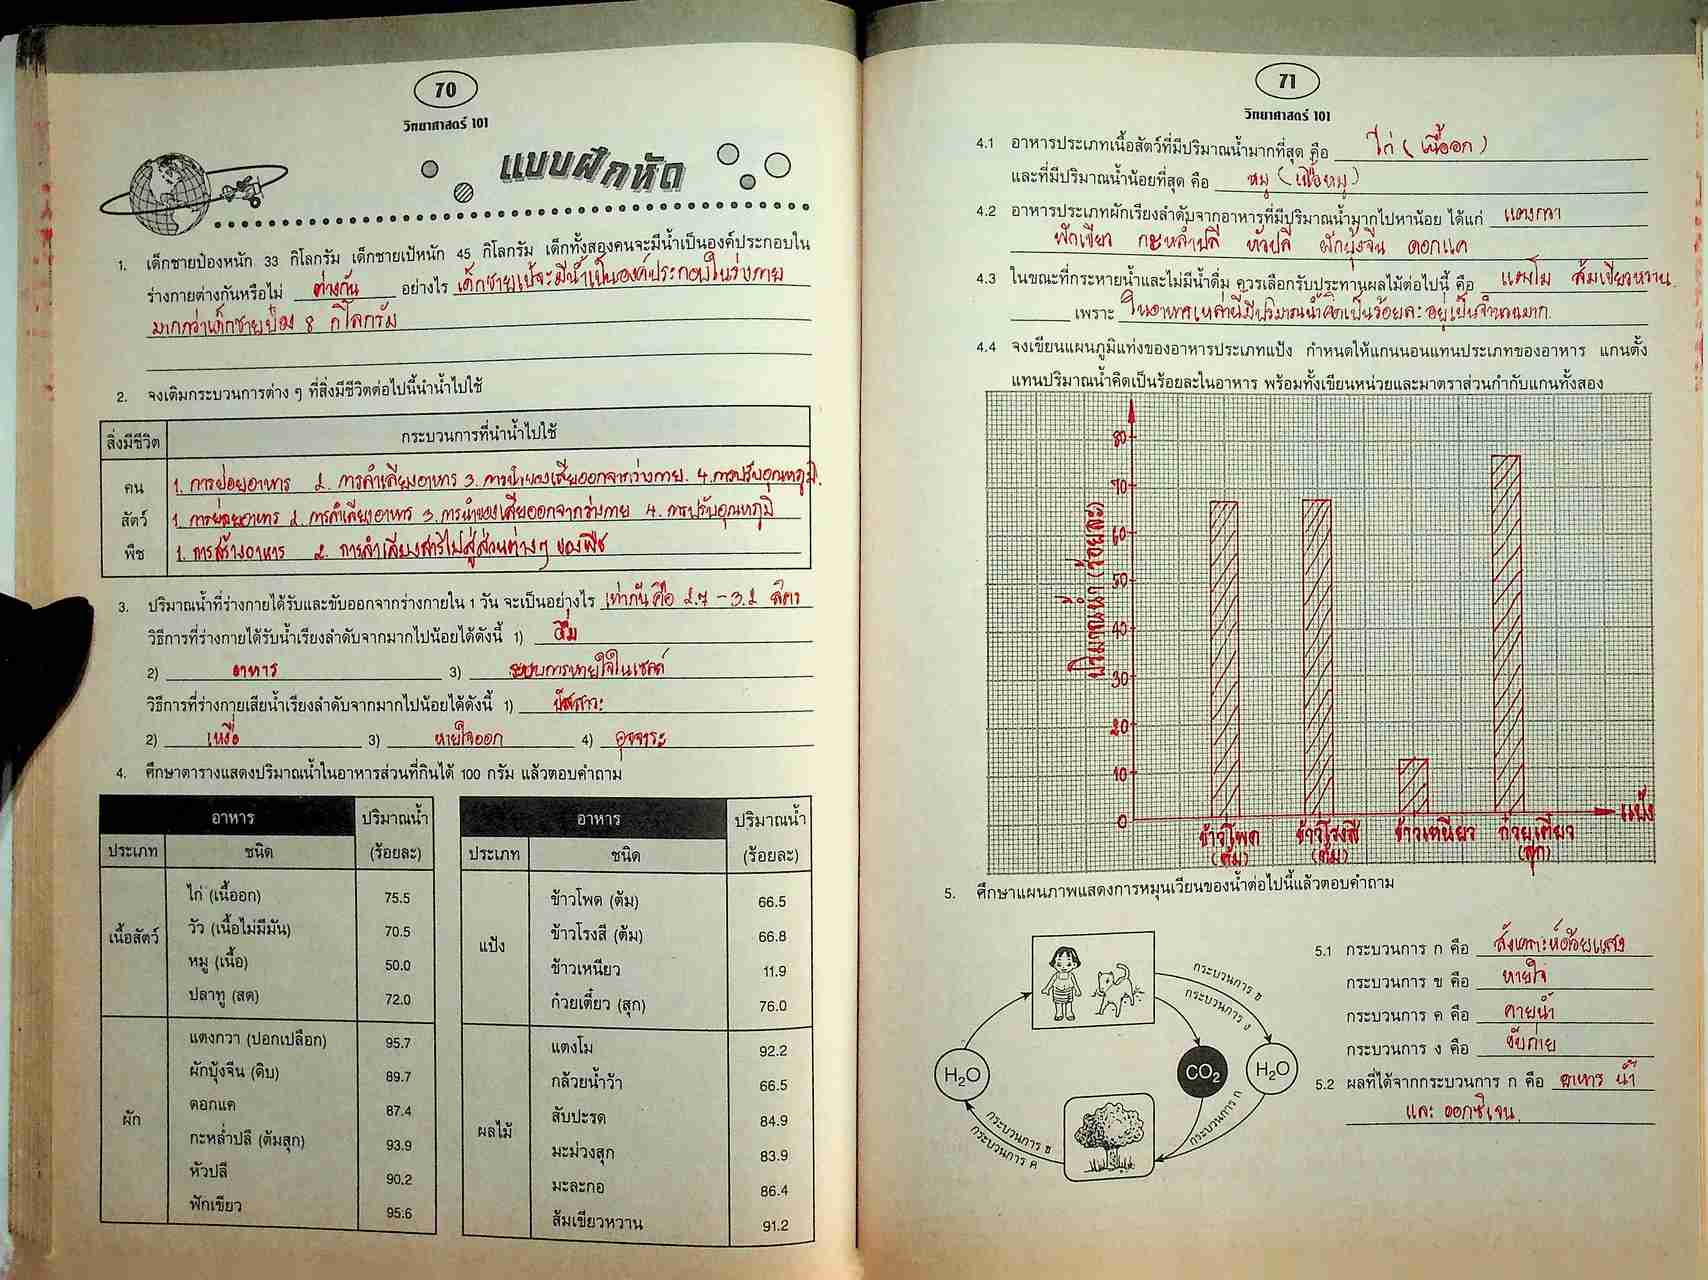 70
วิทยาศาสตร์ 101
แบบฝึกหัด
1. เด็กชายป่องหนัก 33 กิโลกรัม เด็กชายเป้หนัก 45 กิโลกรัม เด็กทั้งสองคนจะมีน้ำเป็นองค์ประกอบใน
ร่างกายต่างกันหรือไม่ ต่างกัน อย่างไร เด็กชายเป้จะมีน้ำเป็นองค์ประกอบในร่างกาย
มากกว่าเด็กชายป่อง 8 กิโลกรัม
2. จงเติมกระบวนการต่าง ๆ ที่สิ่งมีชีวิตต่อไปนี้นำน้ำไปใช้
สิ่งมีชีวิต กระบวนการที่นำน้ำไปใช้
คน 1. การย่อยอาหาร 2. การลำเลียงอาหาร 3. การนำของเสียออกจากร่างกาย. 4. การปรับอุณหภูมิ.
สัตว์ 1. การย่อยอาหาร 2. การลำเลียงอาหาร 3. การนำของเสียออกจากร่างกาย 4. การปรับอุณหภูมิ
พืช 1. การสร้างอาหาร 2. การลำเลียงสารไปสู่ส่วนต่างๆ ของพืช
3. ปริมาณน้ำที่ร่างกายได้รับและขับออกจากร่างกายใน 1 วัน จะเป็นอย่างไร เท่ากันคือ 2.7 - 3.2 ลิตร
วิธีการที่ร่างกายได้รับน้ำเรียงลำดับจากมากไปน้อยได้ดังนี้ 1) ดื่ม
2) อาหาร 3) ระบบการหายใจในเซลล์
วิธีการที่ร่างกายเสียน้ำเรียงลำดับจากมากไปน้อยได้ดังนี้ 1) ปัสสาวะ
2) เหงื่อ 3) หายใจออก 4) อุจจาระ
4. ศึกษาตารางแสดงปริมาณน้ำในอาหารส่วนที่กินได้ 100 กรัม แล้วตอบคำถาม
อาหาร ปริมาณน้ำ
ประเภท ชนิด (ร้อยละ)
เนื้อสัตว์
ไก่ (เนื้ออก) 75.5
วัว (เนื้อไม่มีมัน) 70.5
หมู (เนื้อ) 50.0
ปลาทู (สด) 72.0
ผัก
แตงกวา (ปอกเปลือก) 95.7
ผักบุ้งจีน (ดิบ) 89.7
ดอกแค 87.4
กะหล่ำปลี (ต้มสุก) 93.9
หัวปลี 90.2
ฟักเขียว 95.6
อาหาร ปริมาณน้ำ
ประเภท ชนิด (ร้อยละ)
แป้ง
ข้าวโพด (ต้ม) 66.5
ข้าวโรงสี (ต้ม) 66.8
ข้าวเหนียว 11.9
ก๋วยเตี๋ยว (สุก) 76.0
ผลไม้
แตงโม 92.2
กล้วยน้ำว้า 66.5
สับปะรด 84.9
มะม่วงสุก 83.9
มะละกอ 86.4
ส้มเขียวหวาน 91.2
71
วิทยาศาสตร์ 101
4.1 อาหารประเภทเนื้อสัตว์ที่มีปริมาณน้ำมากที่สุด คือ ไก่ (เนื้ออก)
และที่มีปริมาณน้ำน้อยที่สุด คือ หมู (เนื้อหมู)
4.2 อาหารประเภทผักเรียงลำดับจากอาหารที่มีปริมาณน้ำมากไปหาน้อย ได้แก่ แตงกวา
ฟักเขียว กะหล่ำปลี หัวปลี ผักบุ้งจีน ดอกแค
4.3 ในขณะที่กระหายน้ำและไม่มีน้ำดื่ม ควรเลือกรับประทานผลไม้ต่อไปนี้ คือ แตงโม ส้มเขียวหวาน
เพราะ ในอาหารเหล่านี้มีปริมาณน้ำคิดเป็นร้อยละอยู่เป็นจำนวนมาก.
4.4 จงเขียนแผนภูมิแท่งของอาหารประเภทแป้ง กำหนดให้แกนนอนแทนประเภทของอาหาร แกนตั้ง
แทนปริมาณน้ำคิดเป็นร้อยละในอาหาร พร้อมทั้งเขียนหน่วยและมาตราส่วนกำกับแกนทั้งสอง
ปริมาณน้ำ (ร้อยละ)
80
70
60
50
40
30
20
10
0
แป้ง
ข้าวโพด (ต้ม)
ข้าวโรงสี (ต้ม)
ข้าวเหนียว
ก๋วยเตี๋ยว (สุก)
5. ศึกษาแผนภาพแสดงการหมุนเวียนของน้ำต่อไปนี้แล้วตอบคำถาม
กระบวนการ ข
กระบวนการ ง
H₂O
CO₂
H₂O
กระบวนการ ข
กระบวนการ ค
กระบวนการ ก
5.1 กระบวนการ ก คือ สังเคราะห์ด้วยแสง
กระบวนการ ข คือ หายใจ
กระบวนการ ค คือ คายน้ำ
กระบวนการ ง คือ ขับถ่าย
5.2 ผลที่ได้จากกระบวนการ ก คือ อาหาร น้ำ
และ ออกซิเจน.